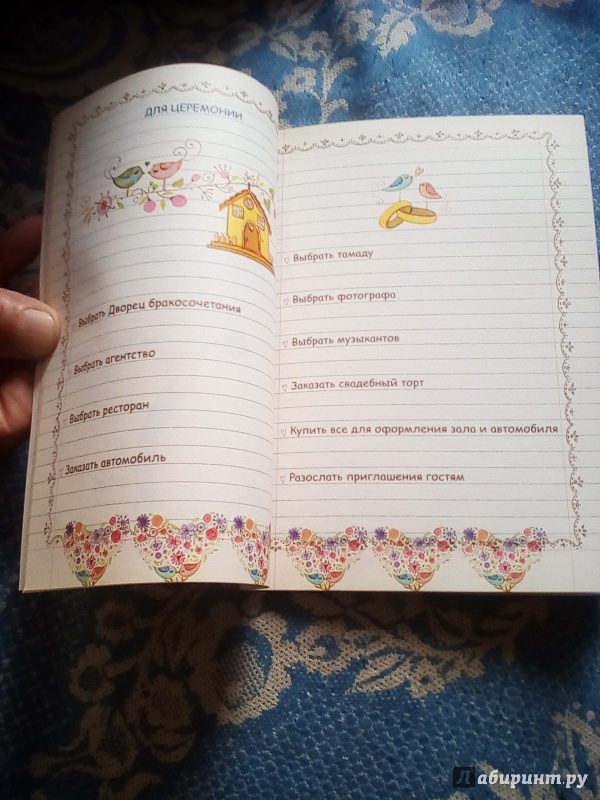 ДЛЯ ЦЕРЕМОНИИ
Выбрать Дворец бракосочетания
Выбрать агентство
Выбрать ресторан
Заказать автомобиль
Выбрать тамаду
Выбрать фотографа
Выбрать музыкантов
Заказать свадебный торт
Купить все для оформления зала и автомобиля
Разослать приглашения гостям
Лабиринт.ру